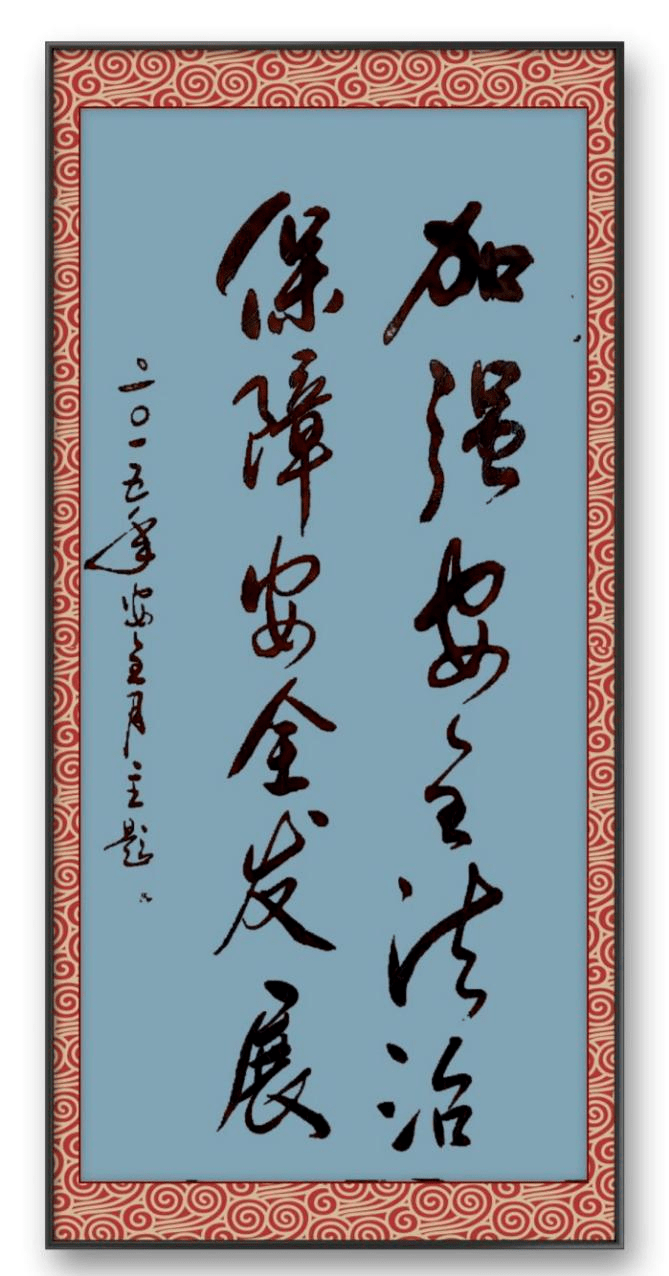 加强安全法治
保障安全发展
二〇一五年安全月主题